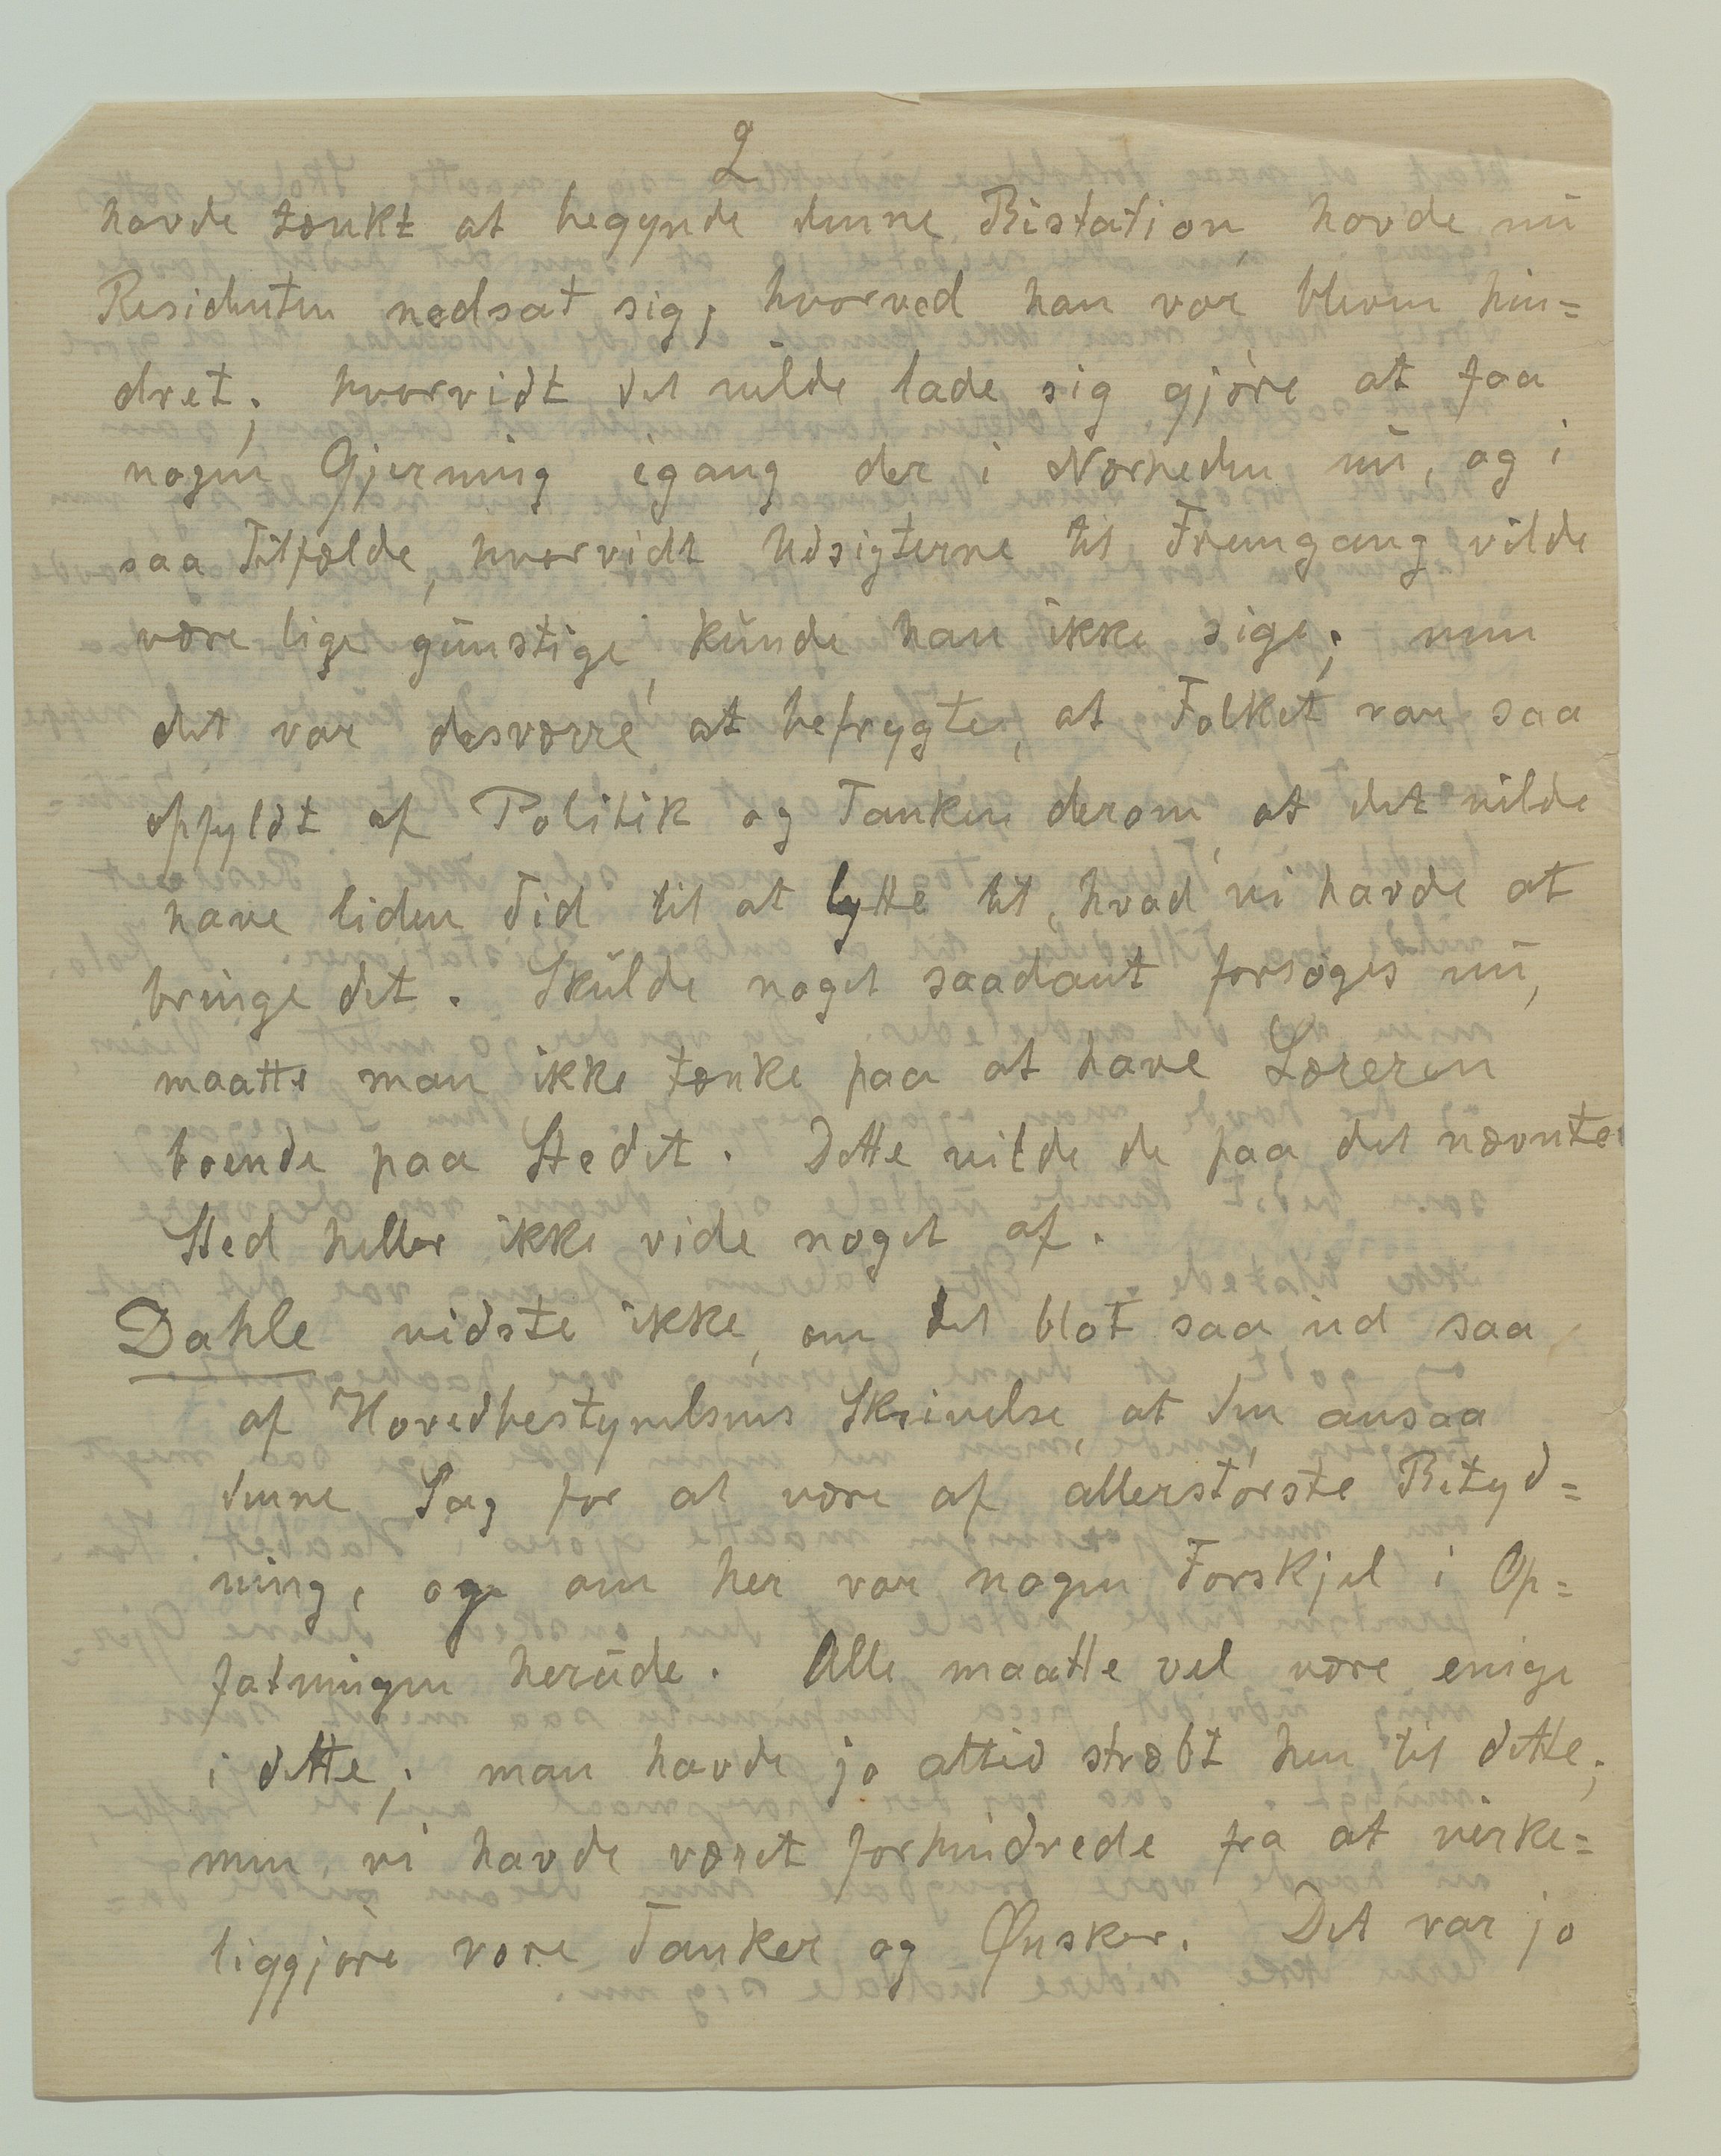 2
havde tænkt at begynde denne Bistation havde nu
Residenten nedsat sig, hvorved han var bleven hin=
dret; hvorvidt det vilde lade sig gjøre at faa
nogen Gjerning igang der i Nærheden nu, og i
saa Tilfælde, hvorvidt Udsigterne til Fremgang vilde
være lige gunstige, kunde han ikke sige; men
det var desværre at befrygte, at Folket var saa
opfyldt af Politik og Tanken derom, at det vilde
have liden Tid til at lytte til, hvad vi havde at
bringe det. Skulde noget saadant forsøges nu,
maatte man ikke tænke paa at have Læreren
boende paa Stedet. Dette vilde de paa det nævnte
Sted heller ikke vide noget af.
Dahle vidste ikke, om det blot saa ud saa
af Hovedbestyrelsens Skrivelse, at den ansaa
denne Sag for at være af allerstørste Betyd=
ning, og om her var nogen Forskjel i Op=
fatningen herude. Alle maatte vel være enige
i dette; man havde jo altid stræbt hen til dette;
men vi havde været forhindrede fra at verke=
liggjøre vore Tanker og Ønsker. Det var jo